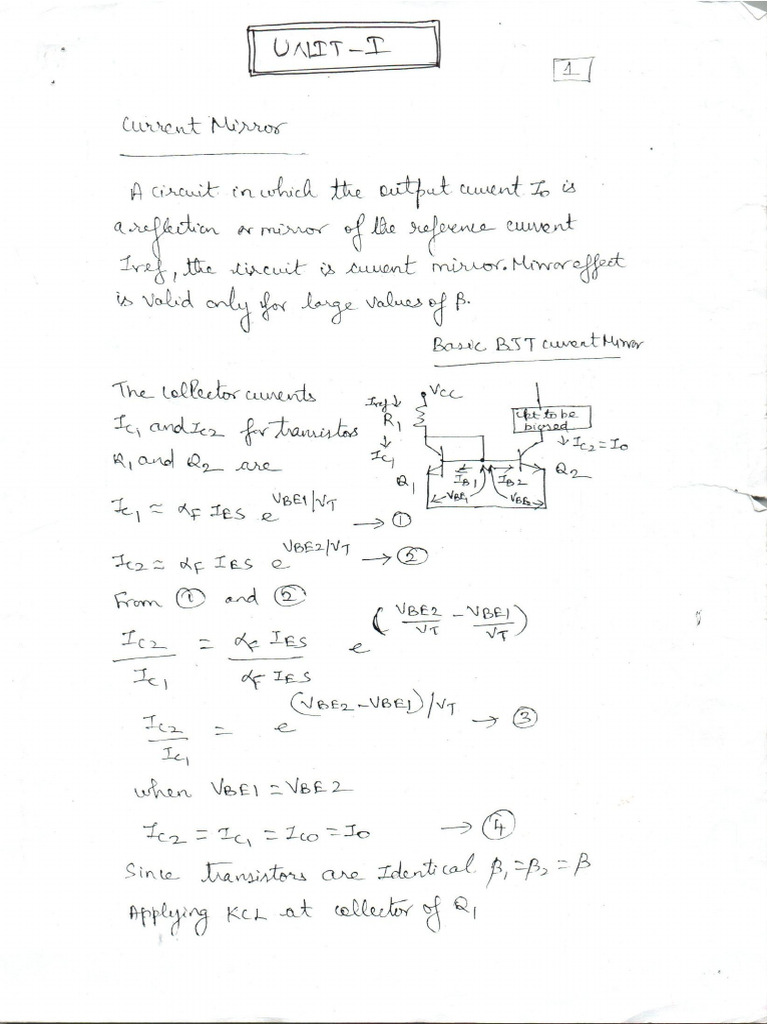 UNIT-I
1
Current Mirror
A circuit in which the output current Io is
a reflection or mirror of the reference current
Iref, the circuit is current mirror. Mirror effect
is valid only for large values of β.
Basic BJT current Mirror
The collector currents
IC1 and IC2 for transistors
Q1 and Q2 are
IC1 ≈ αF IES e^VBE1/VT → ①
IC2 ≈ αF IES e^VBE2/VT → ②
Iref ↓
VCC
R1
↓ IC1
Q1
IB1
IB2
VBE1
VBE2
ckt to be
biased
↓ IC2 = Io
Q2
From ① and ②
IC2/IC1 = αF IES/αF IES e^(VBE2/VT - VBE1/VT)
IC2/IC1 = e^(VBE2-VBE1)/VT → ③
when VBE1 = VBE2
IC2 = IC1 = ICO = IO → ④
Since transistors are Identical β1=β2=β
Applying KCL at collector of Q1